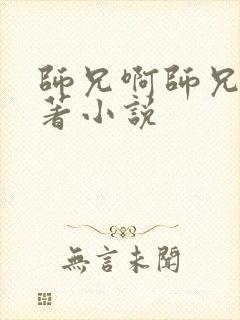 師兄啊師兄
著小說
無言未聞